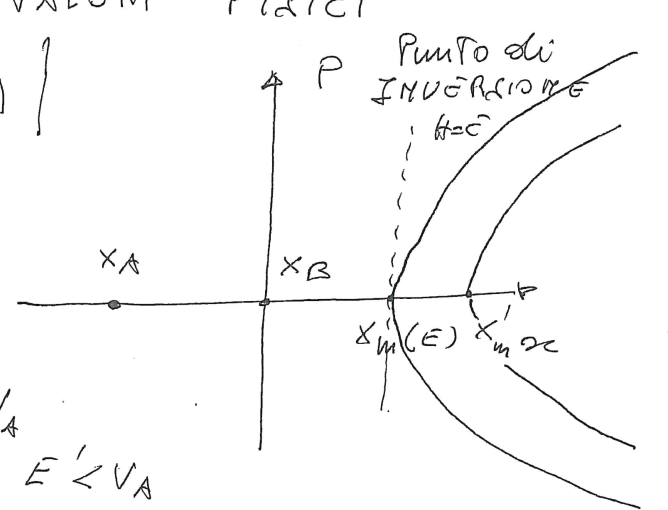 VALORI FISICI
P
Punto di
INVERSIONE
H=E
x_A
x_B
x_m(E)
x'_m
x
V_A
E' < V_A